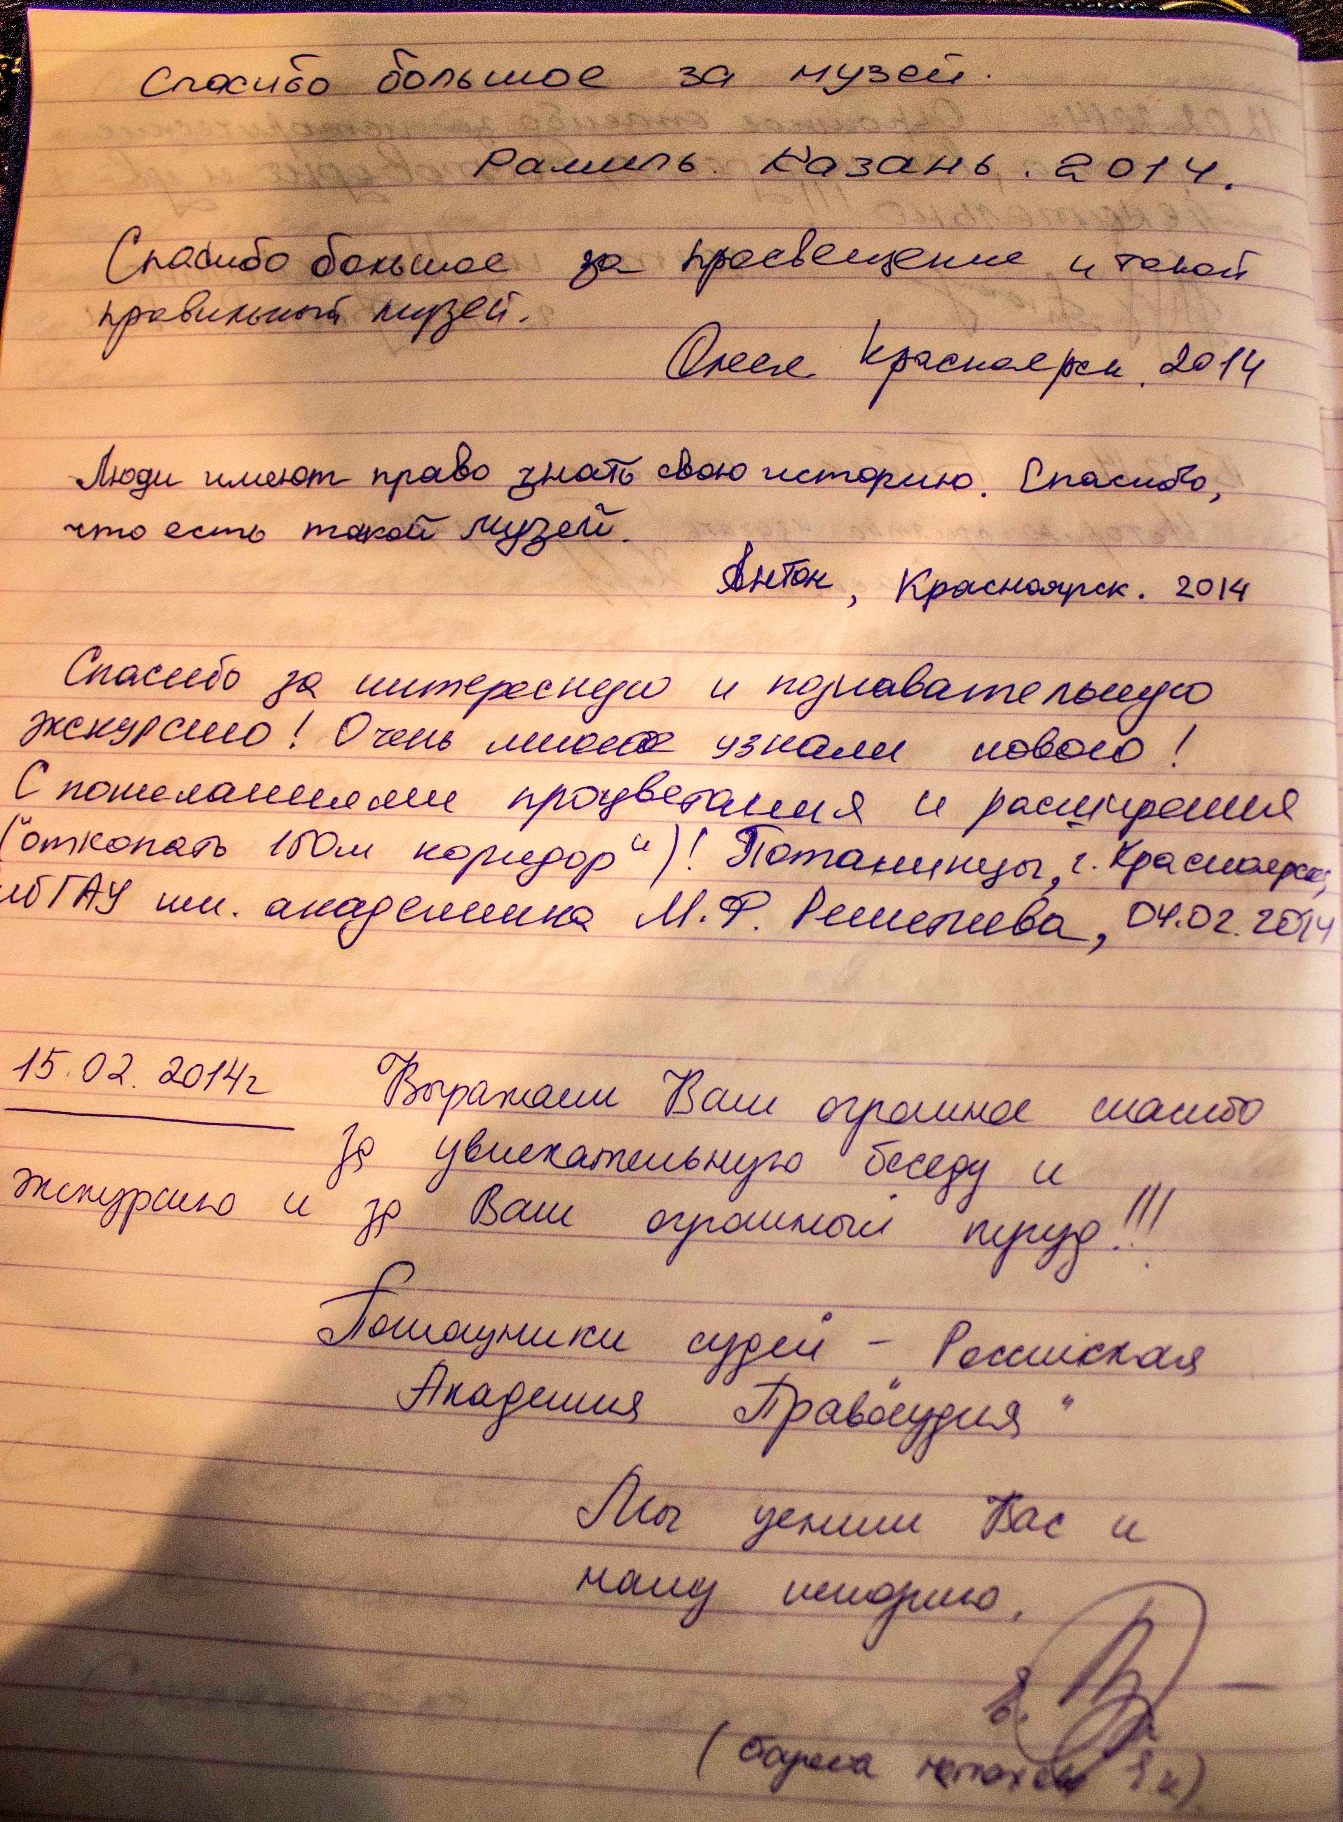 Спасибо большое за музей.
Рамиль. Казань. 2014.
Спасибо большое за просвещение и такой
правильный музей.
Олеся Красноярск. 2014
Люди имеют право знать свою историю. Спасибо,
что есть такой музей.
Антон, Красноярск. 2014
Спасибо за интересную и познавательную
экскурсию! Очень много узнали нового!
С пожеланиями процветания и расширения
("откопать 150м коридор")! Потанинцы, г. Красноярск,
ибГАУ им. академика М.Ф. Решетнева, 04.02.2014
15.02.2014г Выражаем Вам огромное спасибо
за увлекательную беседу и
экскурсию и за Ваш огромный труд!!!
Помощники судей - Российская
Академия "Правосудия"
Мы ценим Вас и
нашу историю.